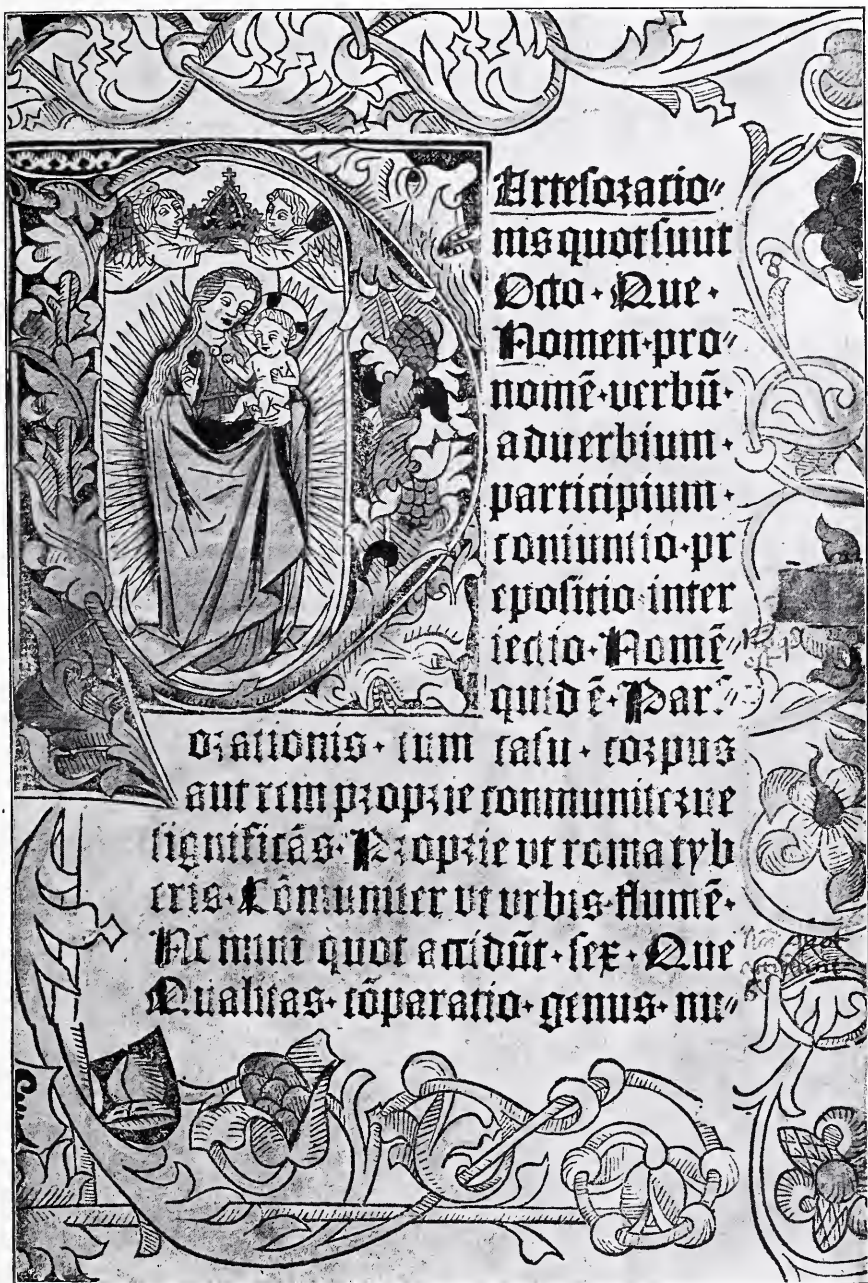 Artes oratio„
nis quot sunt
Octo · Que ·
Nomen · pro„
nomē · uerbū ·
aduerbium ·
participium ·
coniunctio · pr
epositio · inter
iectio · Nomē„
quid ē · Par„
orationis · cum casu · corpus
aut rem proprie conmuniterue
significās · Proprie vt roma tyb
eris · Cōmuniter vt vrbis · flumē ·
No mini quot accidūt · sex · Que
Qualitas · cōparatio · genus · nu„